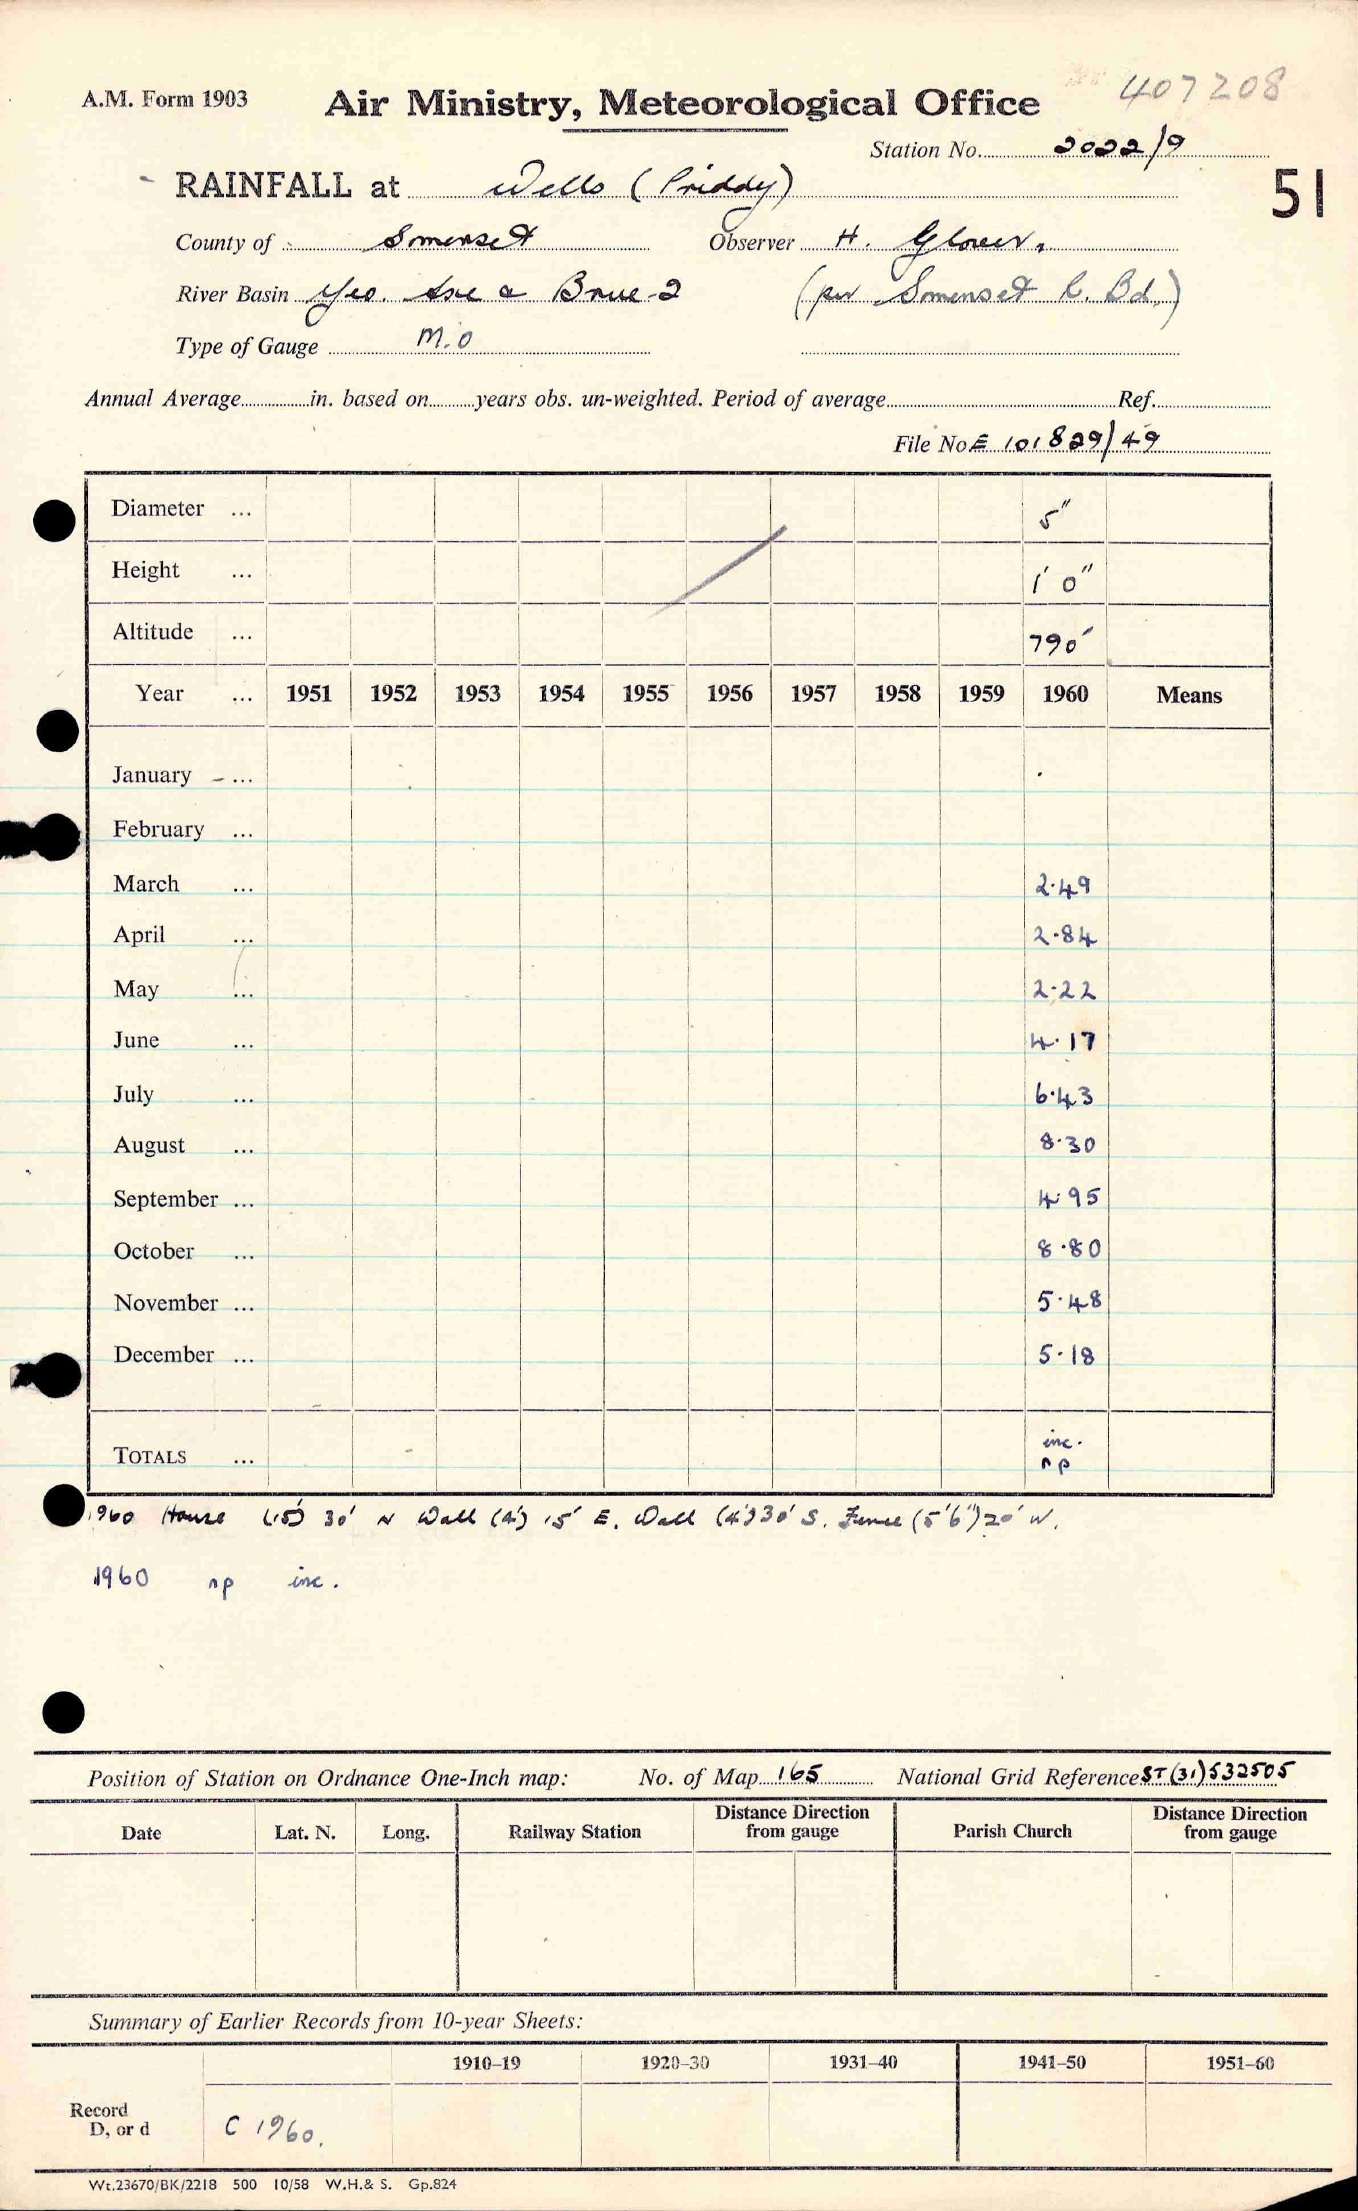 A.M. Form 1903
Air Ministry, Meteorological Office
407208
Station No. 2022/9
RAINFALL at Wells (Priddy)
51
County of Somerset Observer H. Glover.
River Basin Yeo. Axe & Brue-2 (per Somerset C. Bd.)
Type of Gauge M.O
Annual Average in. based on years obs. un-weighted. Period of average Ref.
File No E 101829/49
Diameter ... 5"
Height ... 1' 0"
Altitude ... 790'
Year ... 1951 1952 1953 1954 1955 1956 1957 1958 1959 1960 Means
January ...
February ...
March ... 2.49
April ... 2.84
May ... 2.22
June ... 4.17
July ... 6.43
August ... 8.30
September ... 4.95
October ... 8.80
November ... 5.48
December ... 5.18
TOTALS ... inc.
np
1960 House (15') 30' N Wall (4') 15' E. Wall (4') 30' S. Fence (5'6") 20' W.
1960 np inc.
Position of Station on Ordnance One-Inch map: No. of Map 165 National Grid Reference ST(31)532505
Date Lat. N. Long. Railway Station Distance Direction from gauge Parish Church Distance Direction from gauge
Summary of Earlier Records from 10-year Sheets:
1910–19 1920–30 1931–40 1941–50 1951–60
Record
D, or d C 1960.
Wt.23670/BK/2218 500 10/58 W.H.& S. Gp.824